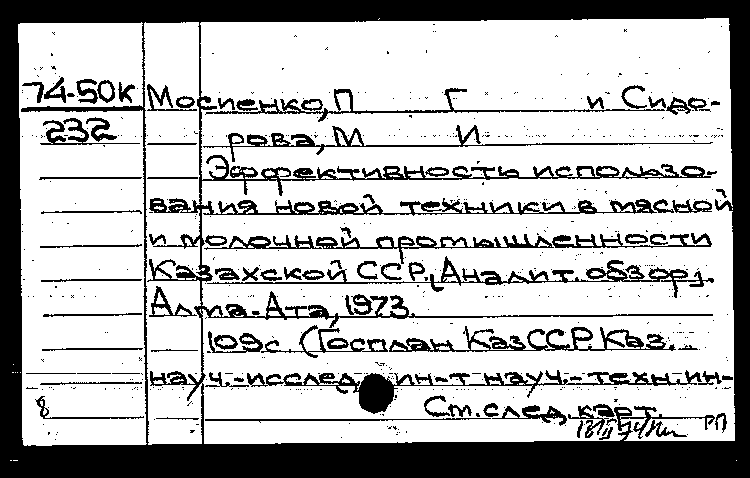 74-50к Мосиенко, П Г и Сидо-
232 рова, М И
Эффективность использо-
вания новой техники в мясной
и молочной промышленности
Казахской ССР. [Аналит. обзор].
Алма-Ата, 1973.
109с. (Госплан КазССР. Каз.
науч.-исслед. ин-т науч.-техн. ин-
8 Ст. след. карт.
РП